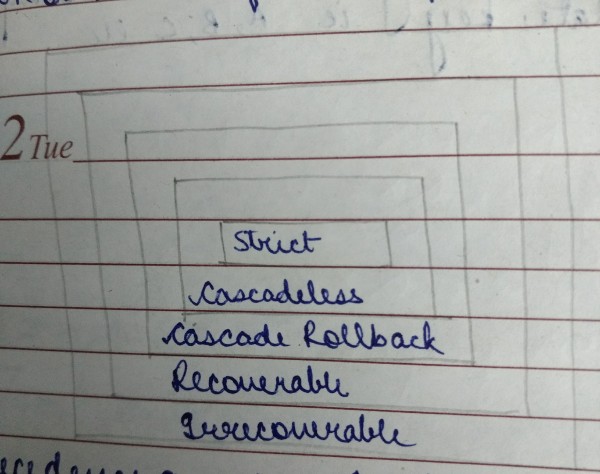 2 Tue
Strict
Cascadeless
Cascade Rollback
Recoverable
Irrecoverable